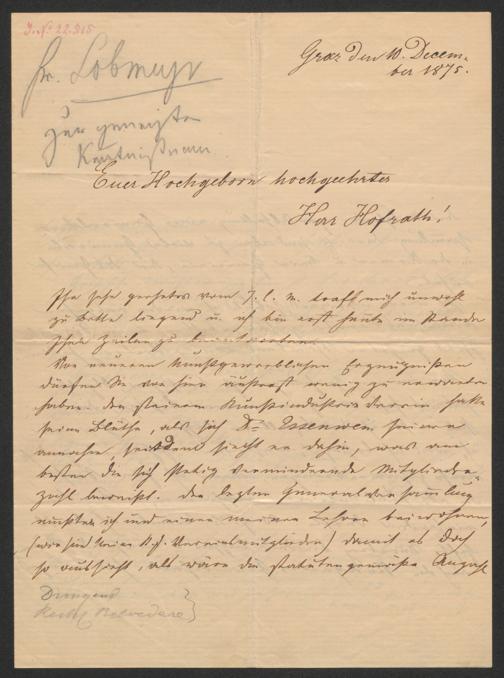 J. No 22.515
Hr. Lobmeyr
zur geneigten
Kenntnißnam
Graz den 10. Decem-
ber 1875.
Euer Hochgeborn hochgeehrter
Herr Hofrath!
Ihr sehr geehrtes vom 7. l. M. traff mich unwohl
zu Bette liegend u. ich bin erst heute im Stande
Ihre Zeilen zu beantworten.
Von neueren kunstgewerblichen Erzeugnißen
dürfen Sie von hier äußerst wenig zu erwarten
haben. Der steierm. Kunstindustrieverein hatte
seine Blüthe, als sich Dr. Essenwein seiner
annahm, seitdem siecht er dahin, was am
besten die sich stetig vermindernde Mitglieder-
zahl beweist. Der letzten Generalversammlung
mußten ich und einer meiner Lehrer beiwohnen,
(wir sind keine Vereinsmitglieder) damit es doch
so aussieht, als wäre die statutengemäße Anzahl
Dringend
Belvedere